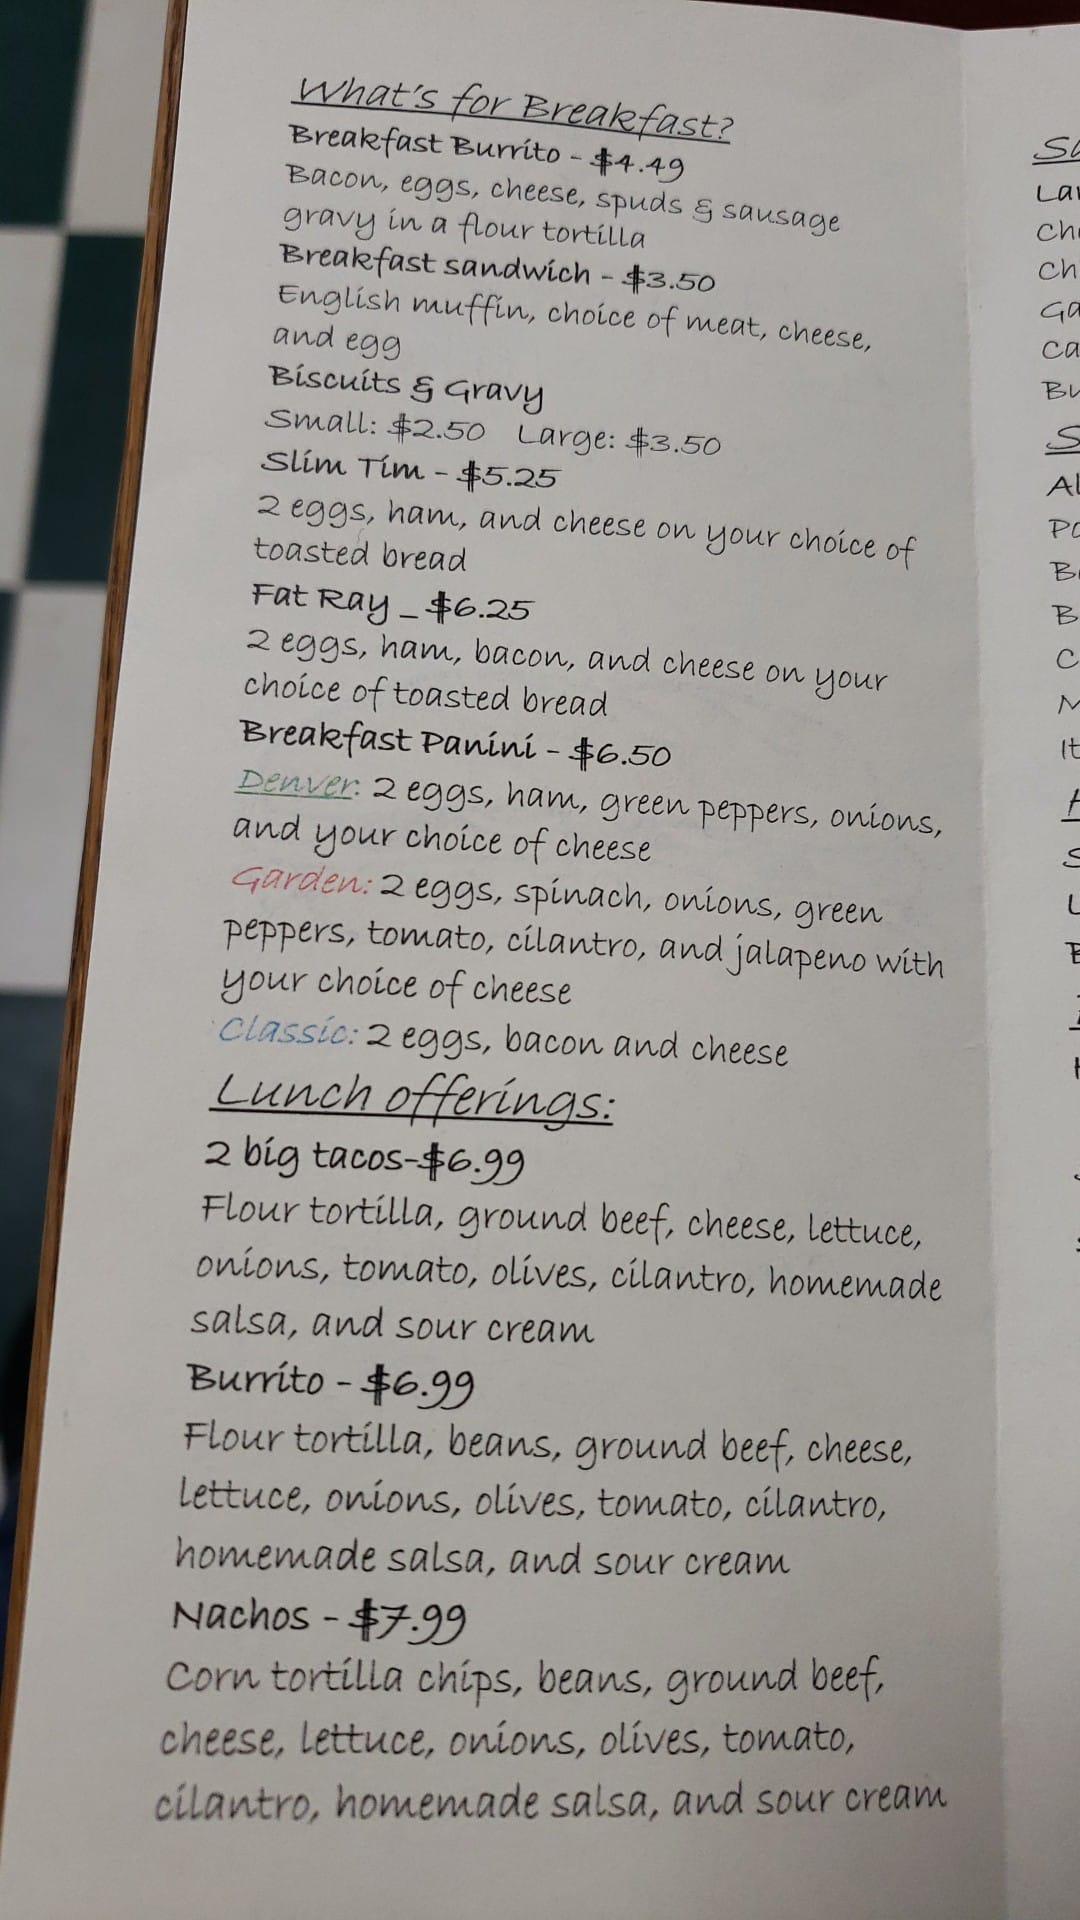 What's for Breakfast?
Breakfast Burrito - $4.49
Bacon, eggs, cheese, spuds & sausage
gravy in a flour tortilla
Breakfast sandwich - $3.50
English muffin, choice of meat, cheese,
and egg
Biscuits & Gravy
Small: $2.50 Large: $3.50
Slim Tim - $5.25
2 eggs, ham, and cheese on your choice of
toasted bread
Fat Ray _ $6.25
2 eggs, ham, bacon, and cheese on your
choice of toasted bread
Breakfast Panini - $6.50
Denver: 2 eggs, ham, green peppers, onions,
and your choice of cheese
Garden: 2 eggs, spinach, onions, green
peppers, tomato, cilantro, and jalapeno with
your choice of cheese
Classic: 2 eggs, bacon and cheese
Lunch offerings:
2 big tacos-$6.99
Flour tortilla, ground beef, cheese, lettuce,
onions, tomato, olives, cilantro, homemade
salsa, and sour cream
Burrito - $6.99
Flour tortilla, beans, ground beef, cheese,
lettuce, onions, olives, tomato, cilantro,
homemade salsa, and sour cream
Nachos - $7.99
Corn tortilla chips, beans, ground beef,
cheese, lettuce, onions, olives, tomato,
cilantro, homemade salsa, and sour cream